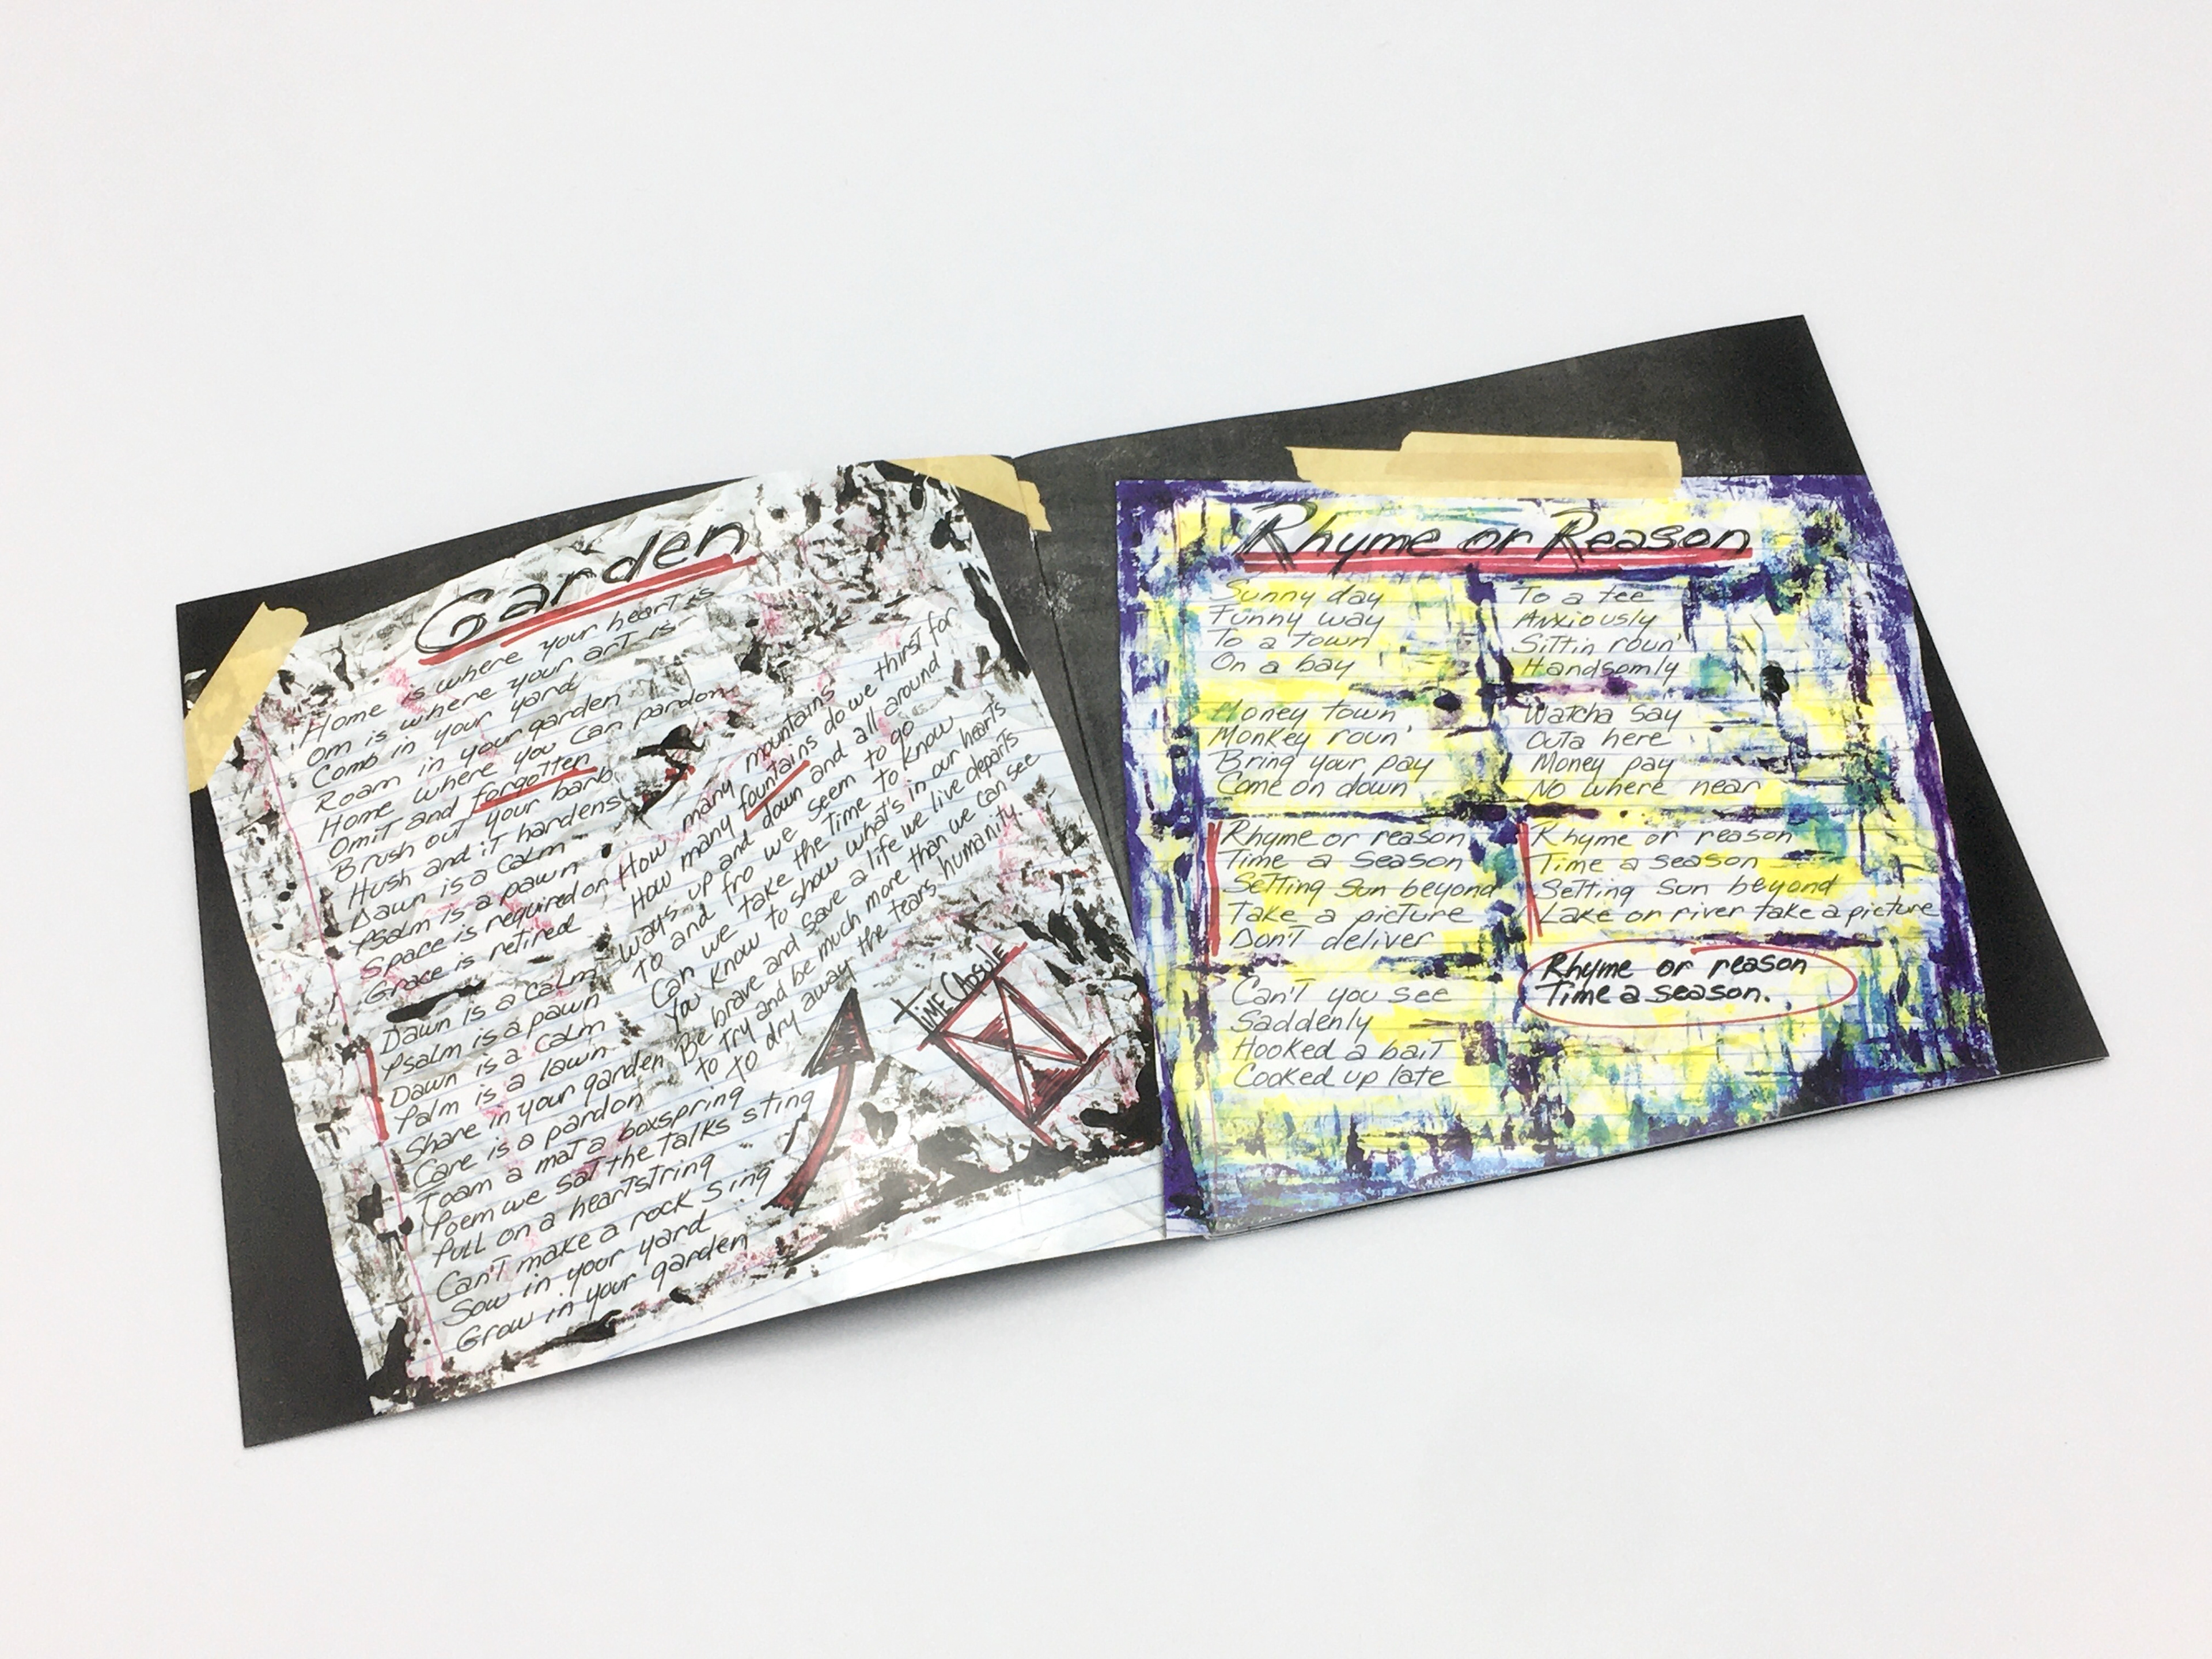 Garden
Home is where your heart is
Om is where your art is
Comb in your yard
Roam in your garden
Home where you can pardon
Omit and forgotten
Brush out your barb
Hush and it hardens
Dawn is a calm
Psalm is a pawn
Space is required on
Grace is retired
Dawn is a calm
Psalm is a pawn
Dawn is a calm
Palm is a lawn
Share in your garden
Care is a pardon
Toam a mat a boxspring
Poem we sat the talks sting
Pull on a heartstring
Can't make a rock sing
Sow in your yard
Grow in your garden
How many mountains
How many fountains do we thirst for
Ways up and down and all around
To and fro we seem to go
Can we take the time to know
You know to show what's in our hearts
Be brave and save a life we live departs
to try and be much more than we can see
to dry away the tears humanity.
TIME CAPSULE
Rhyme or Reason
Sunny day
Funny way
To a town
On a bay
Honey town
Monkey roun'
Bring your pay
Come on down
Rhyme or reason
Time a season
Setting Sun beyond
Take a picture
Don't deliver
Can't you see
Saddenly
Hooked a bait
Cooked up late
To a tee
Anxiously
Sittin roun'
Handsomly
Watcha say
Outa here
Money pay
No where near
Rhyme or reason
Time a season
Setting Sun beyond
Lake or river take a picture
Rhyme or reason
Time a season.